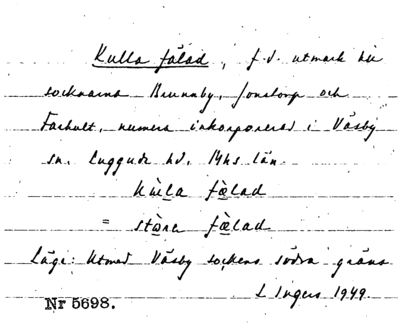 Kulla fälad, f.d. utmark till
socknarna Brunnby, Jonstorp och
Farhult, numera inkorporerad i Väsby
sn. Luggude hd. Mhs län.
kùla fæ̀lad
= stòra fæ̀lad
Läge: Utmed Väsby sockens södra gräns
L Ingers 1949.
Nr 5698.